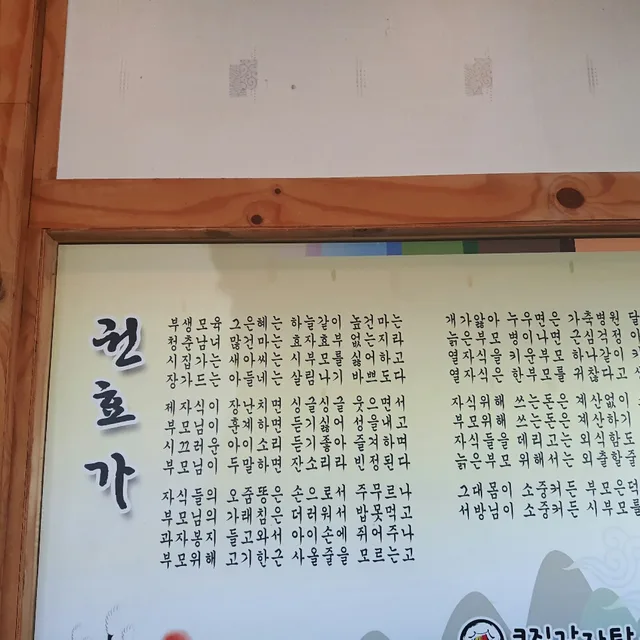 권효가
부생모육 그은혜는 하늘같이 높건마는
청춘남녀 많건마는 효자효부 없는지라
시집가는 새아씨는 시부모를 싫어하고
장가드는 아들네는 살림나기 바쁘도다
제자식이 장난치면 싱글싱글 웃으면서
부모님이 훈계하면 듣기싫어 성을내고
시끄러운 아이소리 듣기좋아 즐겨하며
부모님이 두말하면 잔소리라 빈정된다
자식들의 오줌똥은 손으로서 주무르나
부모님의 가래침은 더러워서 밥못먹고
과자봉지 들고와서 아이손에 쥐어주나
부모위해 고기한근 사올줄을 모르는고
개가앓아 누우면은 가축병원
늙은부모 병이나면 근심걱정
열자식을 키운부모 하나같이
열자식은 한부모를 귀찮다고
자식위해 쓰는돈은 계산없이
부모위해 쓰는돈은 계산하기
자식들을 데리고는 외식함도
늙은부모 위해서는 외출할줄
그대몸이 소중커든 부모은덕
서방님이 소중커든 시부모를